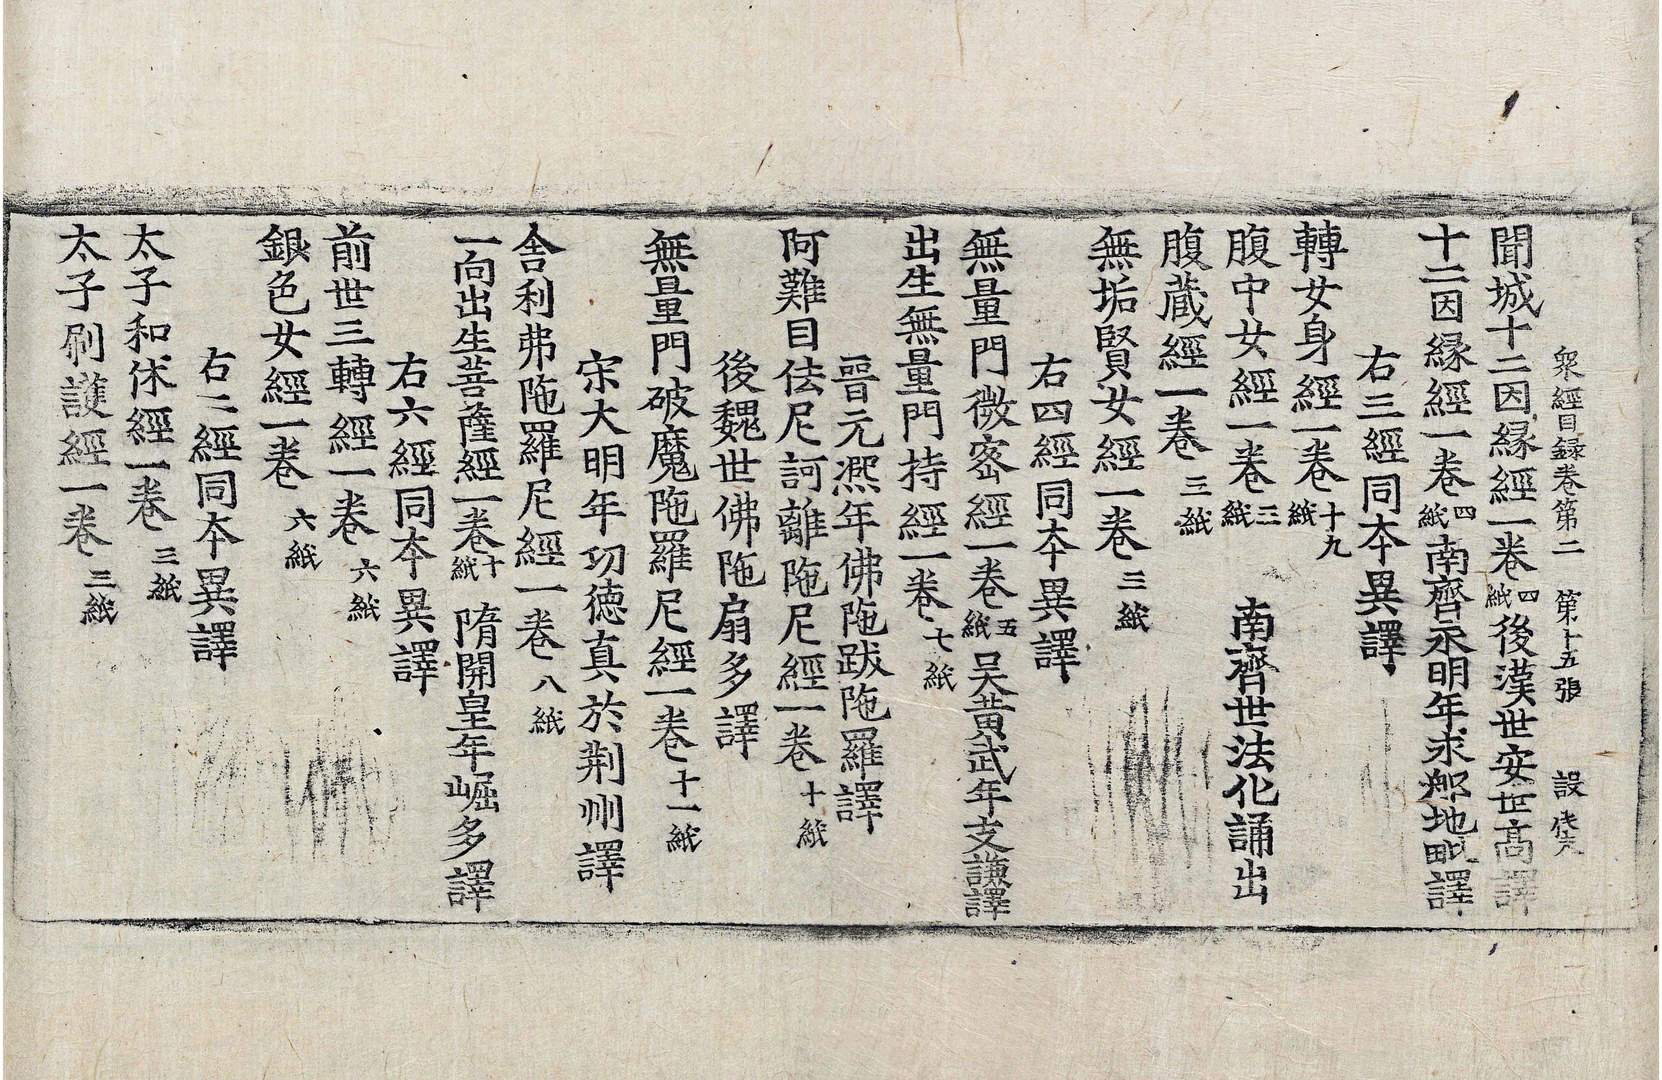 眾經目録卷第二 第十五張 設
聞城十二因緣經一卷 四紙 後漢世安世高譯
十二因緣經一卷 四紙 南齊永明年求那地毗譯
右三經同本異譯
轉女身經一卷 十九紙
腹中女經一卷 三紙 南齊世法化誦出
腹蔵經一卷 三紙
無垢賢女經一卷 三紙
右四經同本異譯
無量門微密經一卷 五紙 吴黄武年支謙譯
出生無量門持經一卷 七紙
晉元熙年佛陁跋陁羅譯
阿難目佉尼訶離陁尼經一卷 十紙
後魏世佛陁扇多譯
無量門破魔陁羅尼經一卷 十一紙
宋大明年功德真於荆州譯
舍利弗陁羅尼經一卷 八紙
一向出生菩薩經一卷 十紙 隋開皇年崛多譯
右六經同本異譯
前世三轉經一卷 六紙
銀色女經一卷 六紙
右二經同本異譯
太子和休經一卷 三紙
太子刷護經一卷 三紙